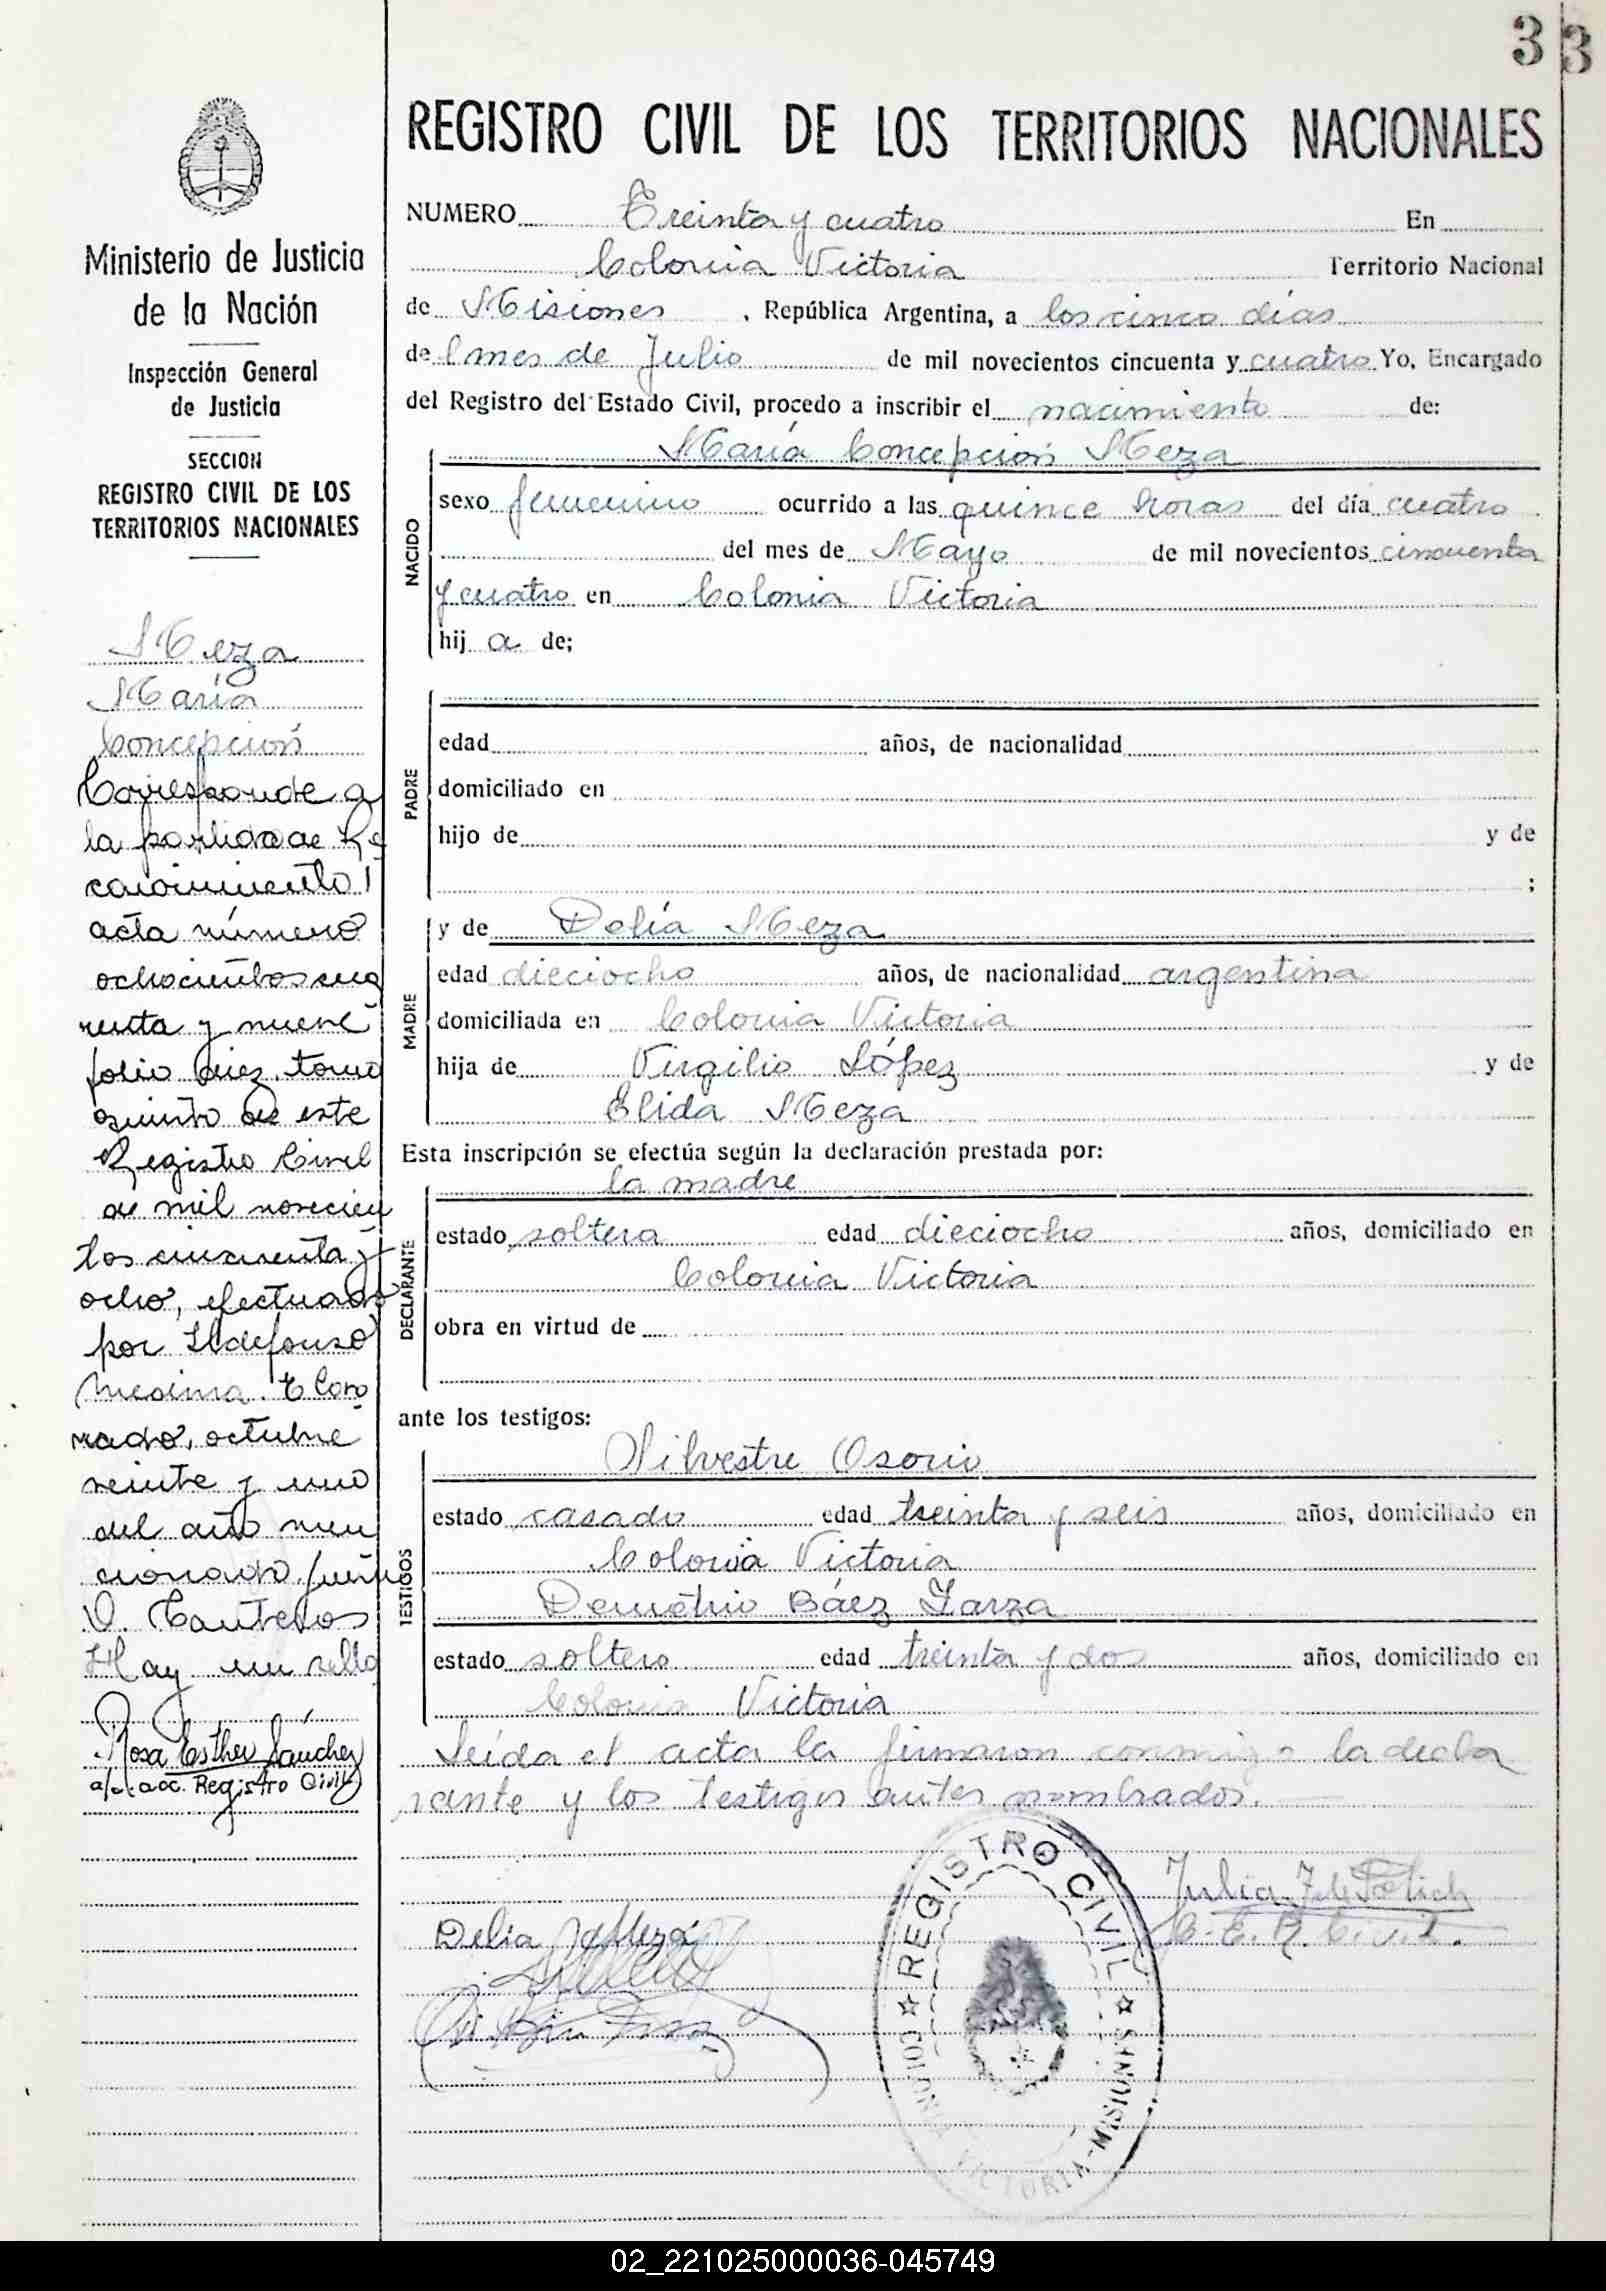 33
REGISTRO CIVIL DE LOS TERRITORIOS NACIONALES
NUMERO Treinta y cuatro En
Colonia Victoria Territorio Nacional
de Misiones, República Argentina, a los cinco días
del mes de Julio de mil novecientos cincuenta y cuatro Yo, Encargado
del Registro del Estado Civil, procedo a inscribir el nacimiento de:
María Concepción Meza
NACIDO
sexo femenino ocurrido a las quince horas del día cuatro
del mes de Mayo de mil novecientos cincuenta
y cuatro en Colonia Victoria
hij a de;
PADRE
edad años, de nacionalidad
domiciliado en
hijo de y de
;
y de Delia Meza
MADRE
edad dieciocho años, de nacionalidad argentina
domiciliada en Colonia Victoria
hija de Virgilio López y de
Elida Meza
Esta inscripción se efectúa según la declaración prestada por:
la madre
DECLARANTE
estado soltera edad dieciocho años, domiciliado en
Colonia Victoria
obra en virtud de
ante los testigos:
Silvestre Osorio
TESTIGOS
estado casado edad treinta y seis años, domiciliado en
Colonia Victoria
Demetrio Báez Zarza
estado soltero edad treinta y dos años, domiciliado en
Colonia Victoria
Leída el acta la firmaron conmigo la decla
rante y los testigos antes nombrados.
Delia Meza
Julia
E. R. Civil.
REGISTRO CIVIL
COLONIA VICTORIA - MISIONES
Ministerio de Justicia
de la Nación
Inspección General
de Justicia
SECCION
REGISTRO CIVIL DE LOS
TERRITORIOS NACIONALES
Meza
María
Concepción
Corresponde a
la partida de Re
conocimiento
acta número
ochocientos cua
renta y nueve
folio diez, tomo
quinto de este
Registro Civil
de mil novecien
tos cincuenta y
ocho, efectuado
por Ildefonso
Medina. Eldo
rado, octubre
veinte y uno
del año men
cionado.
V. Canteros
Hay un sello
Rosa Esther Sánchez
a/c. acc. Registro Civil
02_221025000036-045749